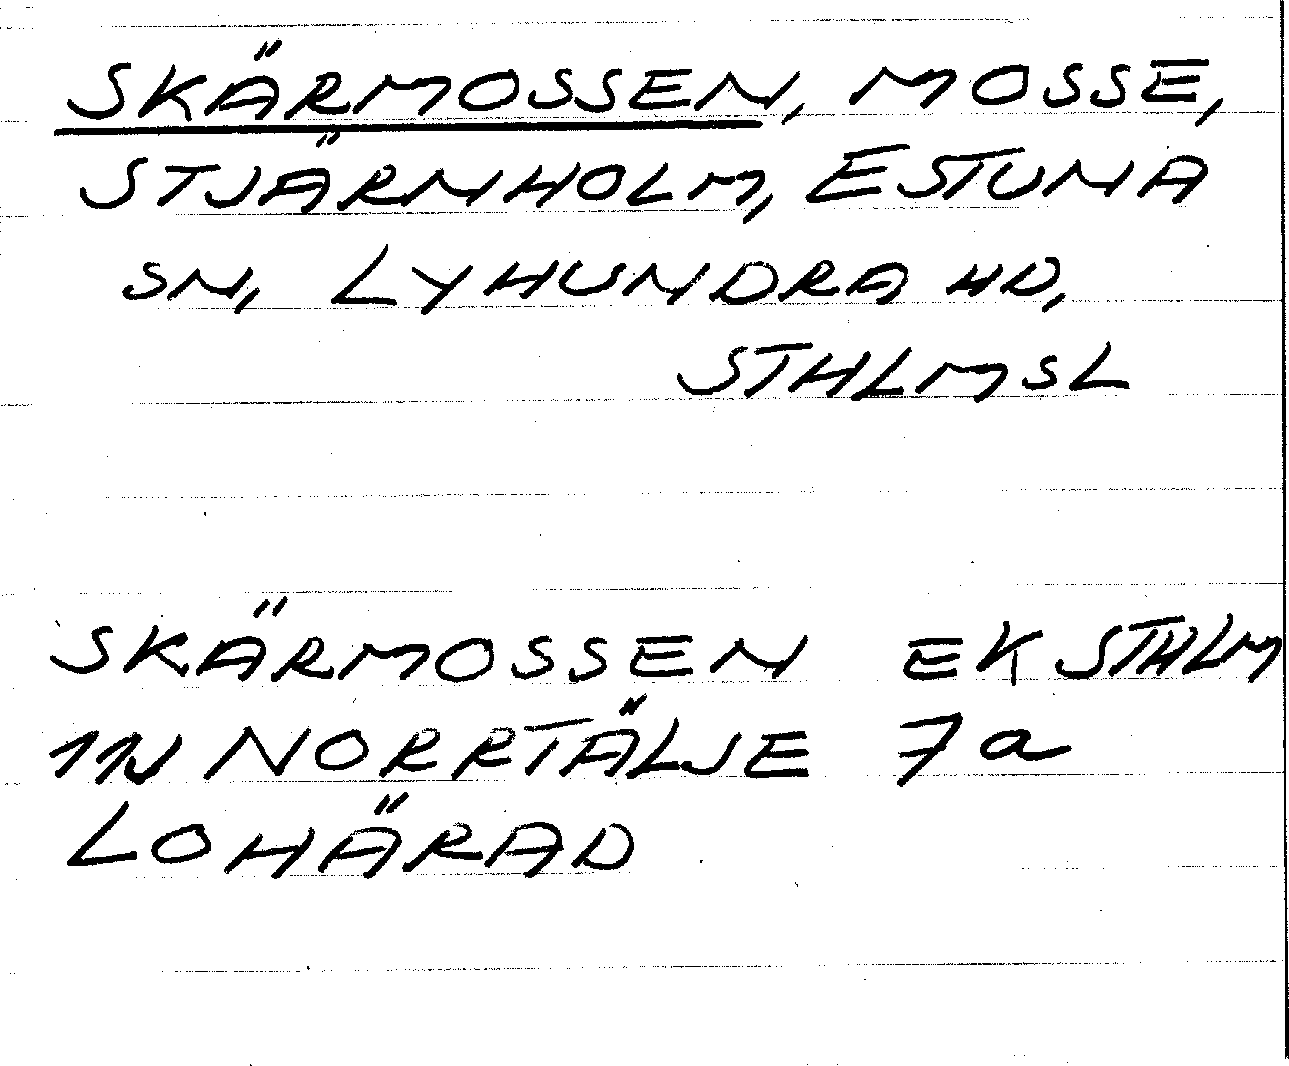 SKÄRMOSSEN, MOSSE,
STJÄRNHOLM, ESTUNA
SN, LYHUNDRA HD,
STHLMSL
SKÄRMOSSEN EK STHLM
11N NORRTÄLJE 7a
LOHÄRAD